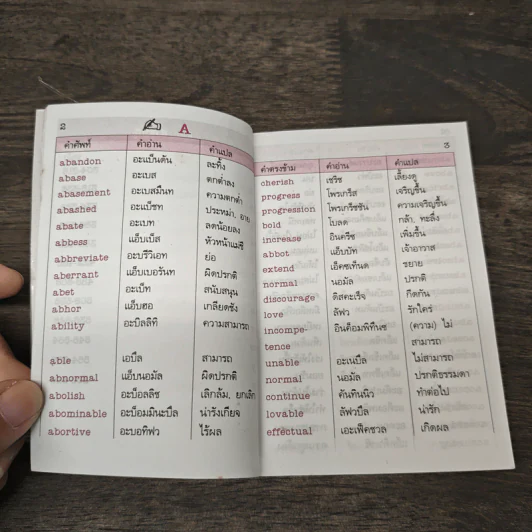 ๒ A
คำศัพท์ คำอ่าน คำแปล
abandon อะแบ็นดัน ละทิ้ง
abase อะเบส ตกต่ำลง
abasement อะเบสมึนท ความตกต่ำ
abashed อะแบ็ชท ประหม่า, อาย
abate อะเบท ลดน้อยลง
abbess แอ็บเบ็ส หัวหน้าแม่ชี
abbreviate อะบรีวิเอท ย่อ
aberrant แอ็บเบอรันท ผิดปรกติ
abet อะเบ็ท สนับสนุน
abhor แอ็บฮอ เกลียดชัง
ability อะบิลลิทิ ความสามารถ
able เอบึล สามารถ
abnormal แอ็บนอมัล ผิดปรกติ
abolish อะบ็อลลิช เลิกล้ม, ยกเลิก
abominable อะบ็อมมินะบึล น่ารังเกียจ
abortive อะบอทิฟว ไร้ผล
๓
คำตรงข้าม คำอ่าน คำแปล
cherish เชริช เลี้ยงดู
progress โพรเกร็ส เจริญขึ้น
progression โพรเกร็ชชัน ความเจริญขึ้น
bold โบลด กล้า, ทะลึ่ง
increase อินครีซ เพิ่มขึ้น
abbot แอ็บบัท เจ้าอาวาส
extend เอ็คซเท็นด ขยาย
normal นอมัล ปรกติ
discourage ดิสคะเร็จ กีดกัน
love ลัฟว รักใคร่
incompe- อินค็อมพิทึนซ (ความ) ไม่
tence สามารถ
unable อะเนบึล ไม่สามารถ
normal นอมัล ปรกติธรรมดา
continue คันทินนิว ทำต่อไป
lovable ลัฟวาบึล น่ารัก
effectual เอะเฟ็คชวล เกิดผล